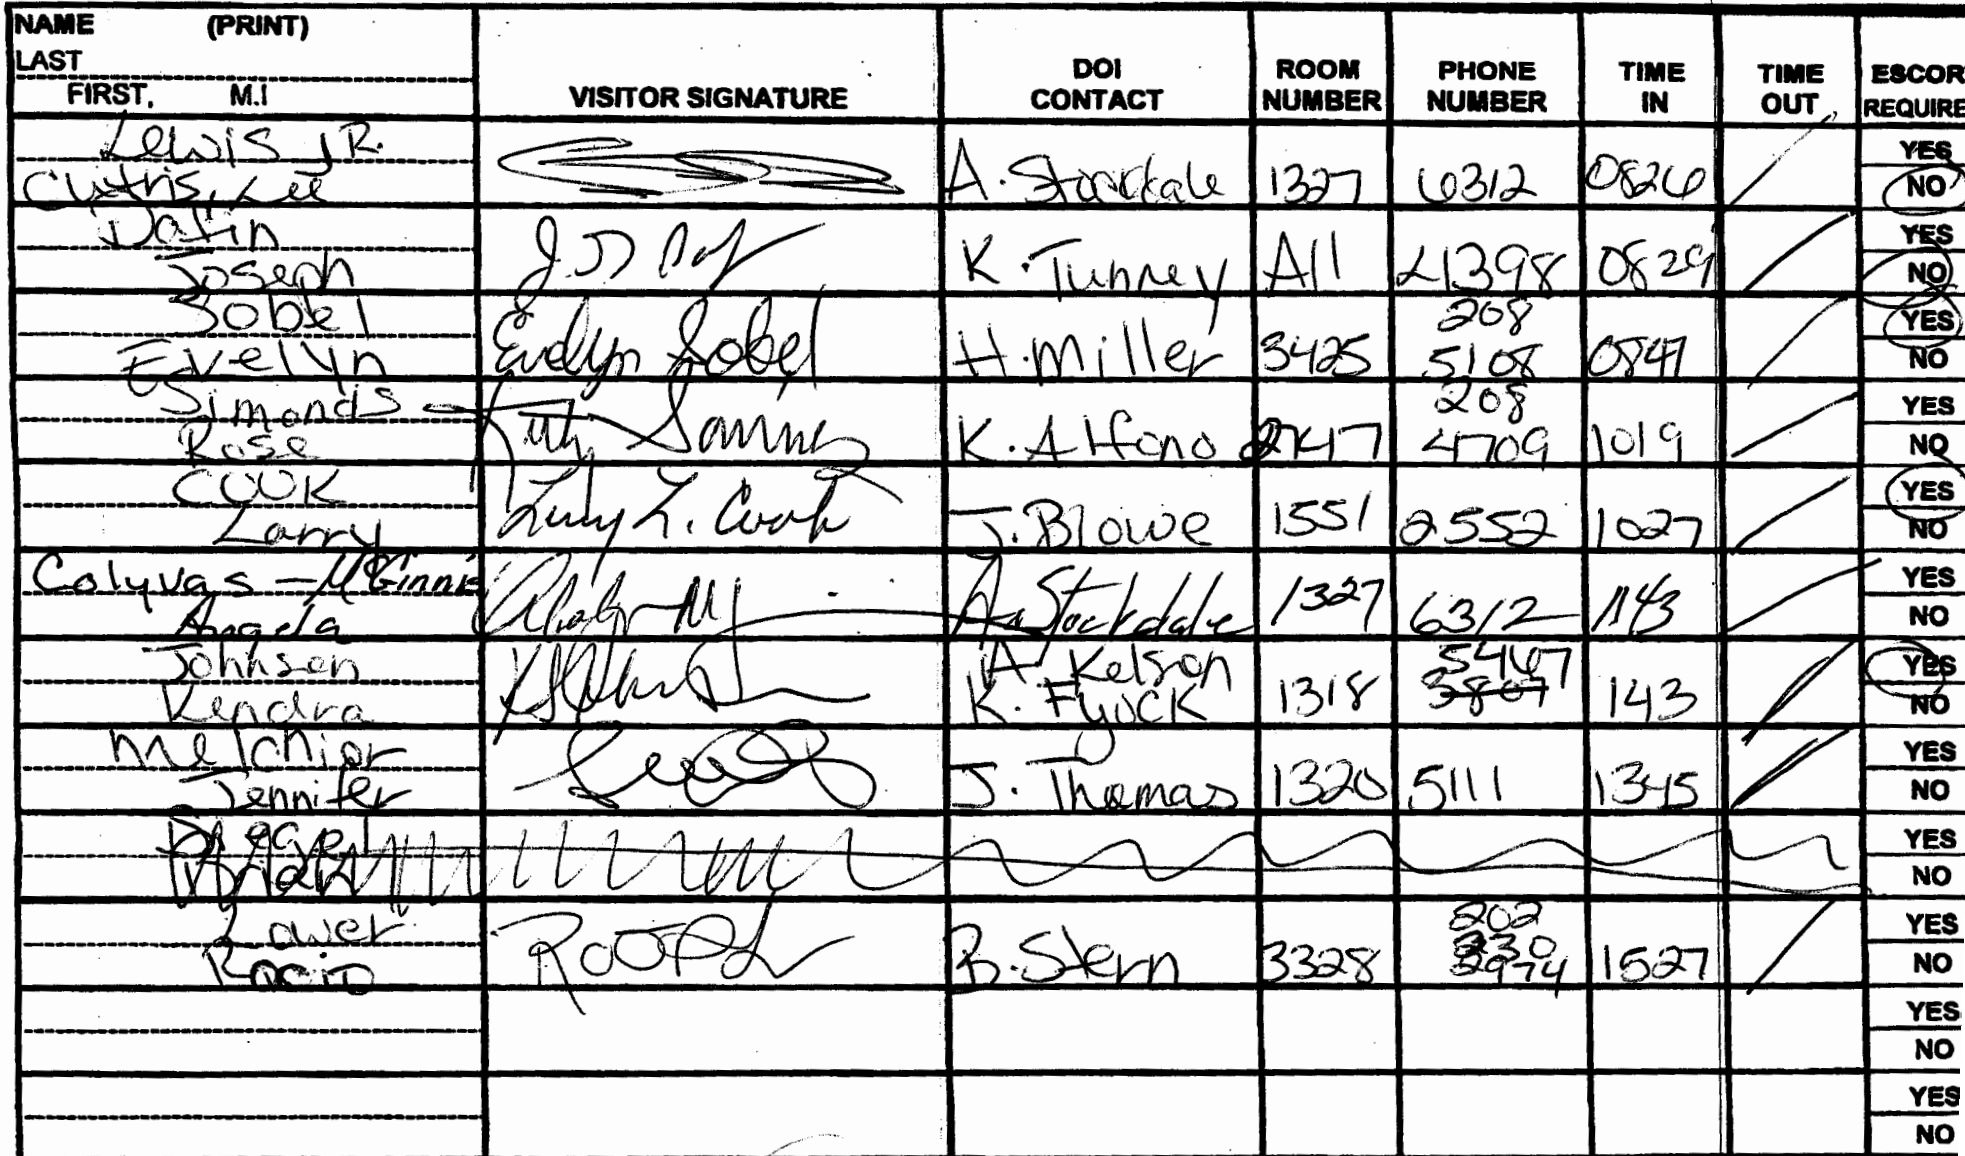 NAME (PRINT)
LAST
FIRST, M.I
VISITOR SIGNATURE
DOI CONTACT
ROOM NUMBER
PHONE NUMBER
TIME IN
TIME OUT
ESCOR
REQUIRE
Lewis JR.
Lee A. Stockdale 1327 6312 0826 YES NO
Joseph K. Tunney All 21398 0829 YES NO
Sobel 208
Evelyn Evelyn Sobel H. Miller 3425 5108 0847 YES NO
Simonds 208
Rose K. Alfono 2747 4709 1019 YES NO
COOK
Larry Larry L. Cook J. Blowe 1551 2552 1027 YES NO
Colyvas - McGinnis
Angela A. Stockdale 1327 6312 1143 YES NO
Johnson A. Kelson 5467
Kendra K. Fyock 1318 3807 143 YES NO
Melchior
Jennifer J. Thomas 1320 5111 1345 YES NO
YES NO
202
Rocio B. Stern 3328 1527 YES NO
YES NO
YES NO